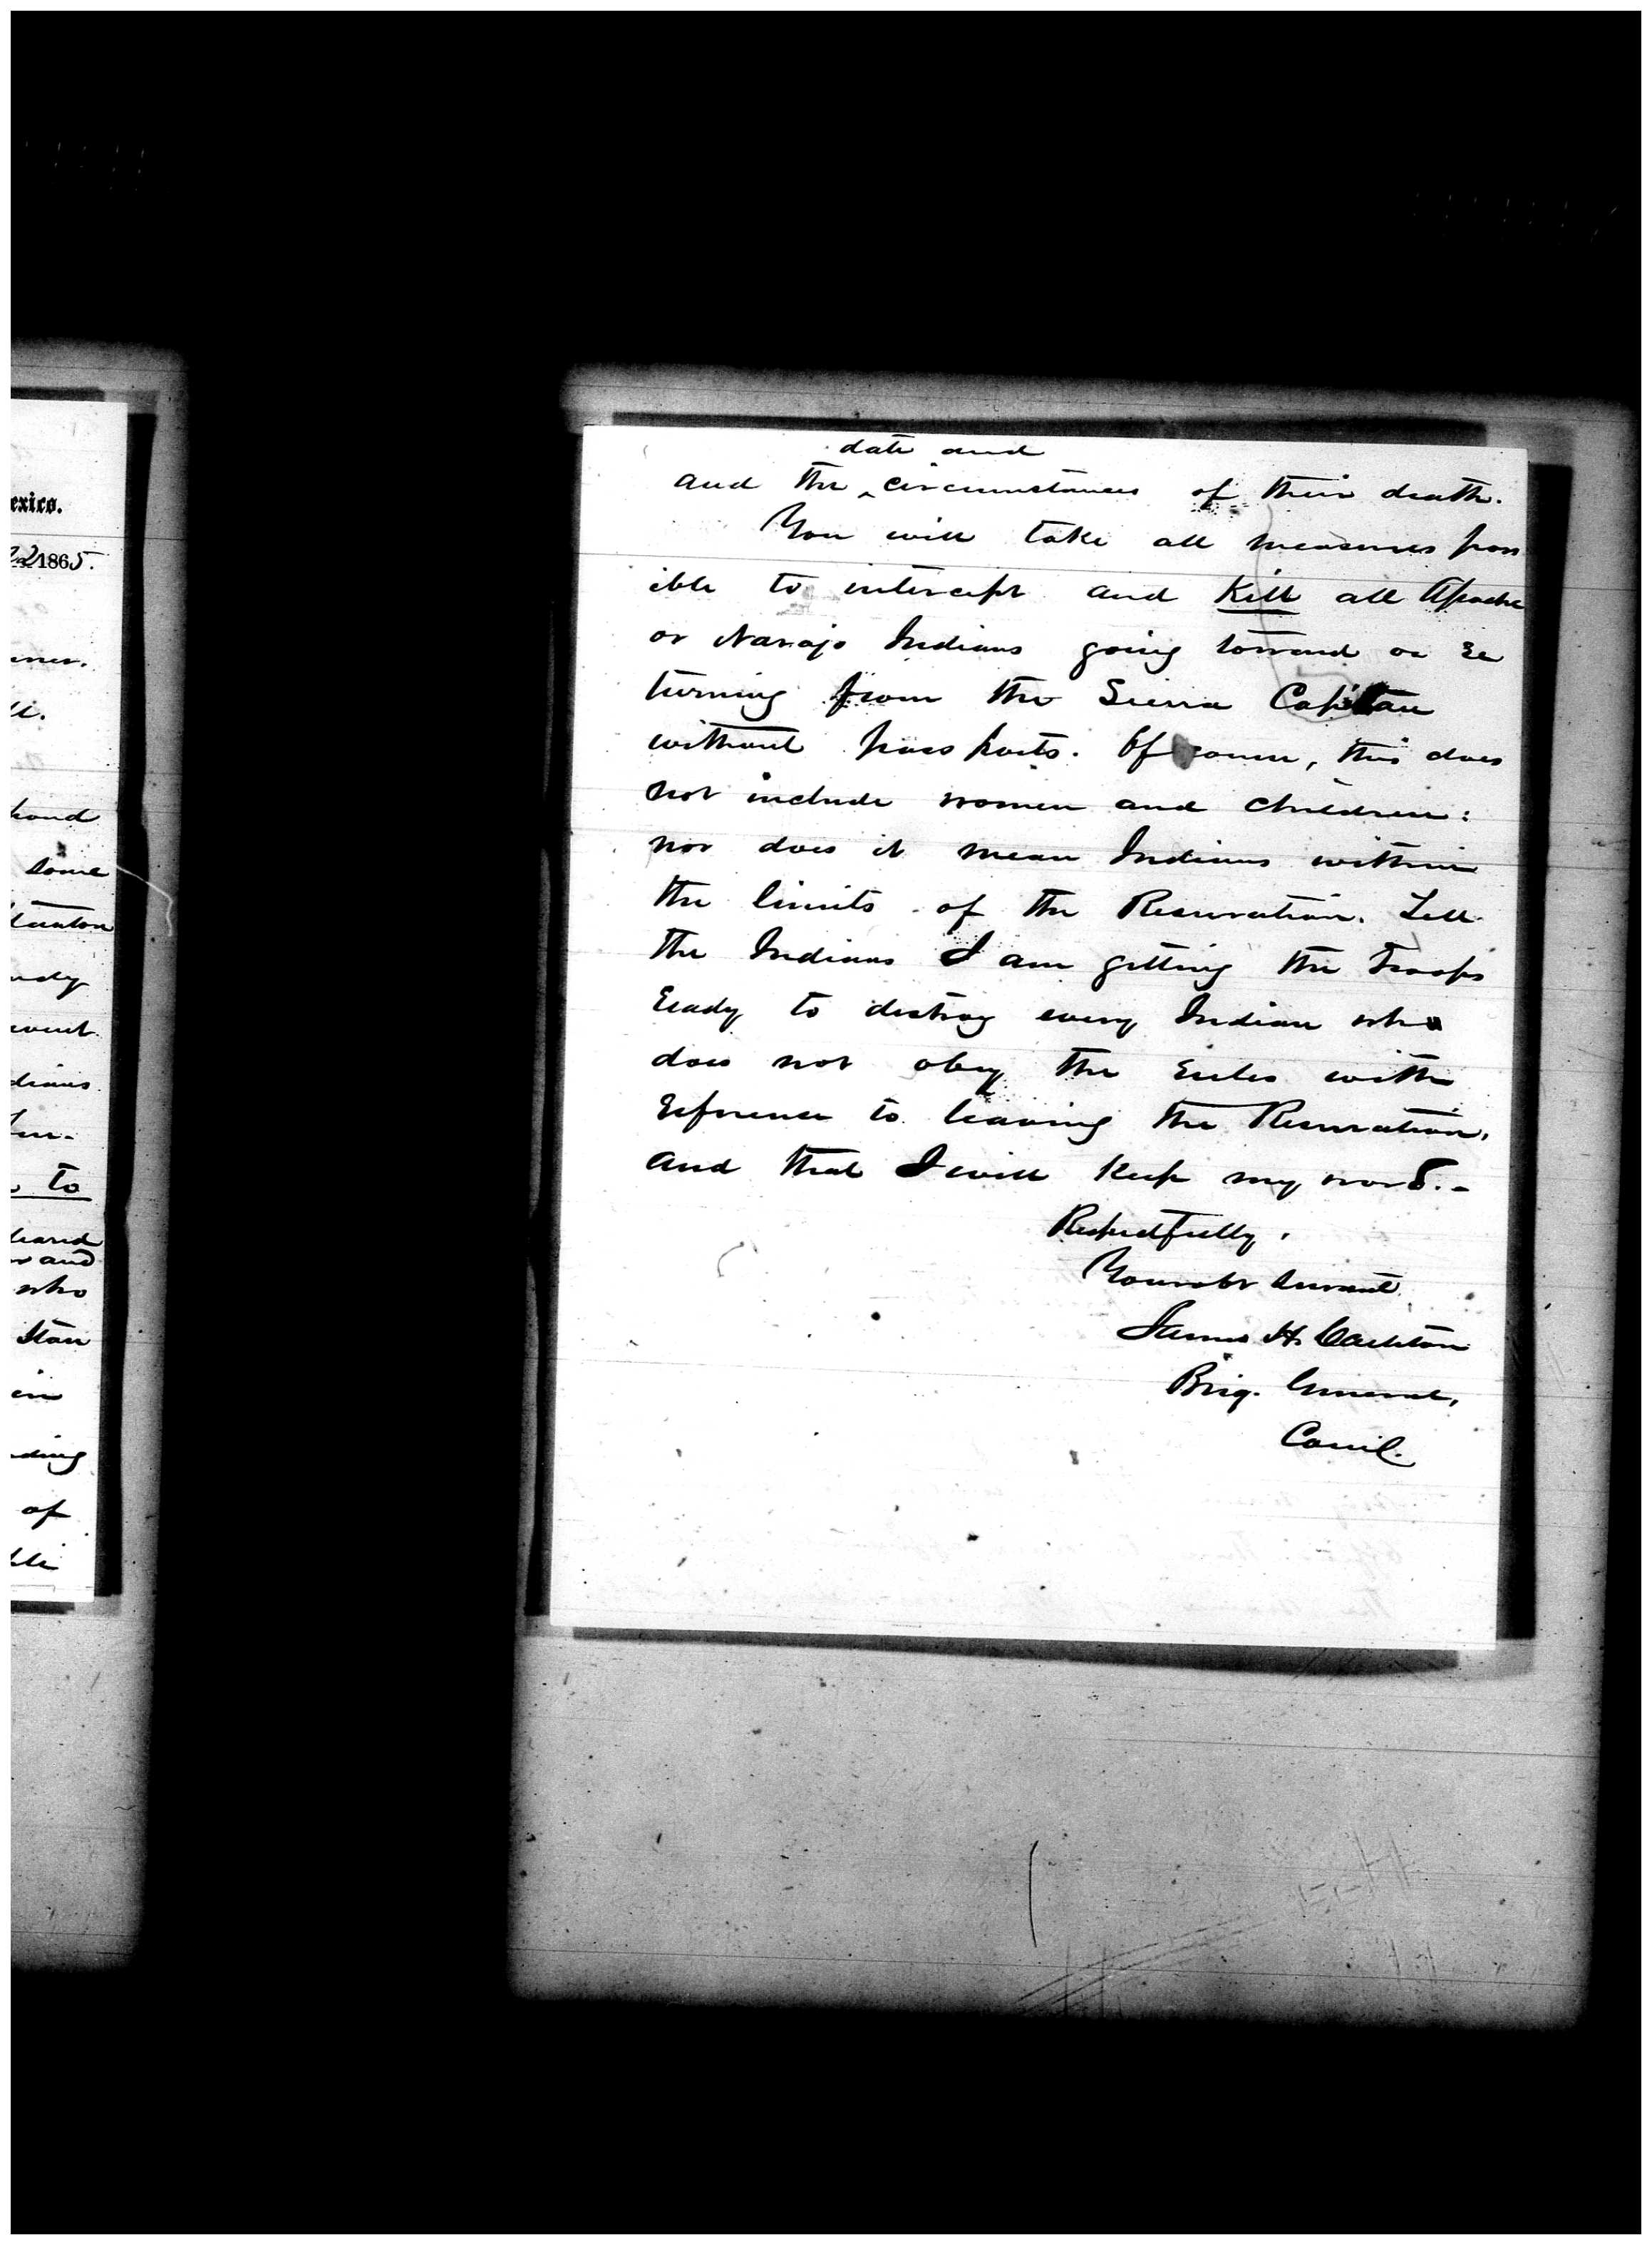 exico.
22 1865.
ner.
ll.
hand
some
Staunton
ndy
vent
dians
to
heard
and
who
Stan
in
nding
of
date and
and the ^ circumstances of their death.
You will take all measures poss
ible to intercept and Kill all Apache
or Navajo Indians going toward or re
turning from the Sierra Capitan
without passports. Of course, this does
not include women and children:
nor does it mean Indians within
the limits of the Reservation. Tell
the Indians I am getting the troops
ready to destroy every Indian who
does not obey the rules with
reference to leaving the Reservation,
and that I will keep my word.-
Respectfully,
Your obt servant
James H. Carleton
Brig. General,
Com'd'g.